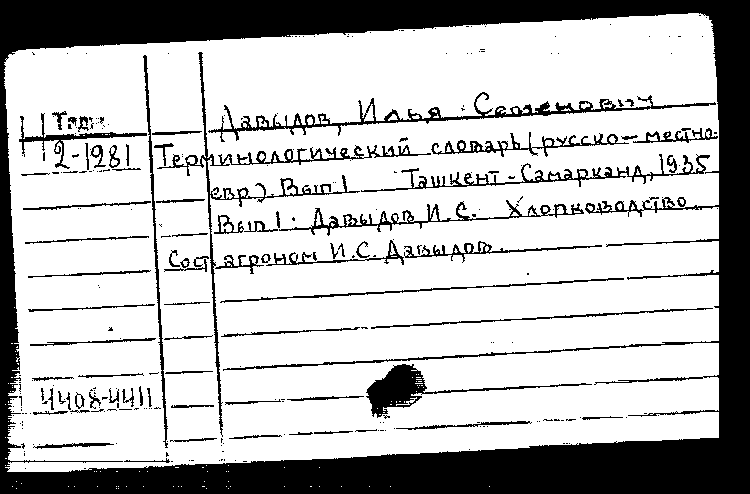 Давыдов, Илья Семенович
2-1981 Терминологический словарь (русско-местно-
евр.). Вып. 1 Ташкент-Самарканд, 1935
Вып 1: Давыдов, И.С. Хлопководство
Сост. агроном И.С. Давыдов.
4408-4411